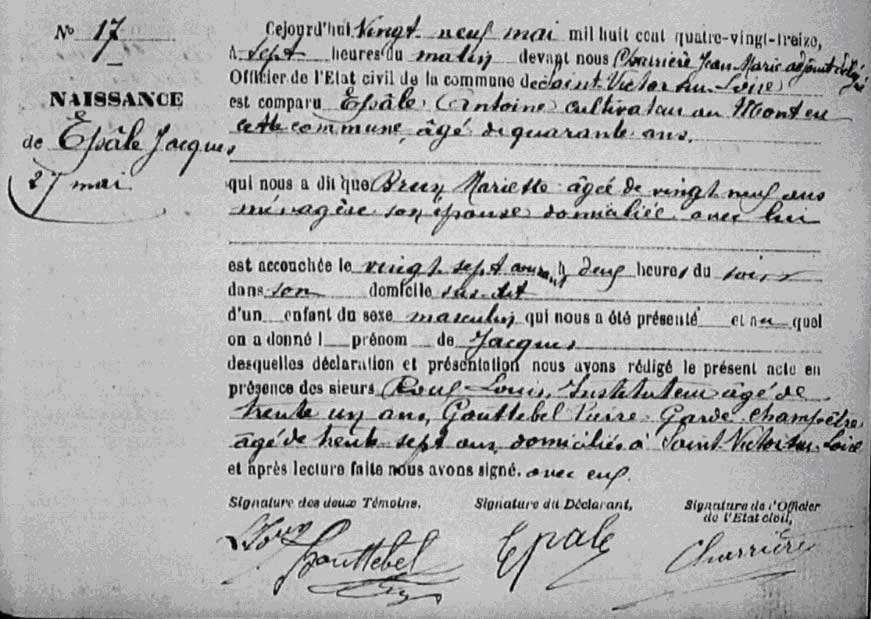 N° 17
NAISSANCE
de Epâle Jacques
27 mai
Cejourd'hui vingt neuf mai mil huit cent quatre-vingt-treize,
à sept heures du matin devant nous Charrière Jean Marie adjoint délégué
Officier de l'Etat civil de la commune de Saint Victor sur Loire
est comparu Epâle (Antoine cultivateur au Mont en
cette commune, âgé de quarante ans.
qui nous a dit que Brun Mariette âgée de vingt neuf ans
ménagère son épouse domiciliée avec lui
est accouchée le vingt sept deux heures du soir
dans son domicile sus dit
d'un enfant du sexe masculin qui nous a été présenté et au quel
on a donné l prénom de Jacques
desquelles déclaration et présentation nous avons rédigé le présent acte en
présence des sieurs Louis, Instituteur âgé de
trente un ans, Gouttebel Garde champêtre
âgé de trente sept ans, domiciliés à Saint Victor sur Loire
et après lecture faite nous avons signé. avec eux.
Signature des deux Témoins. Signature du Déclarant, Signature de l'Officier
de l'Etat civil,
Gouttebel Epale Charrière